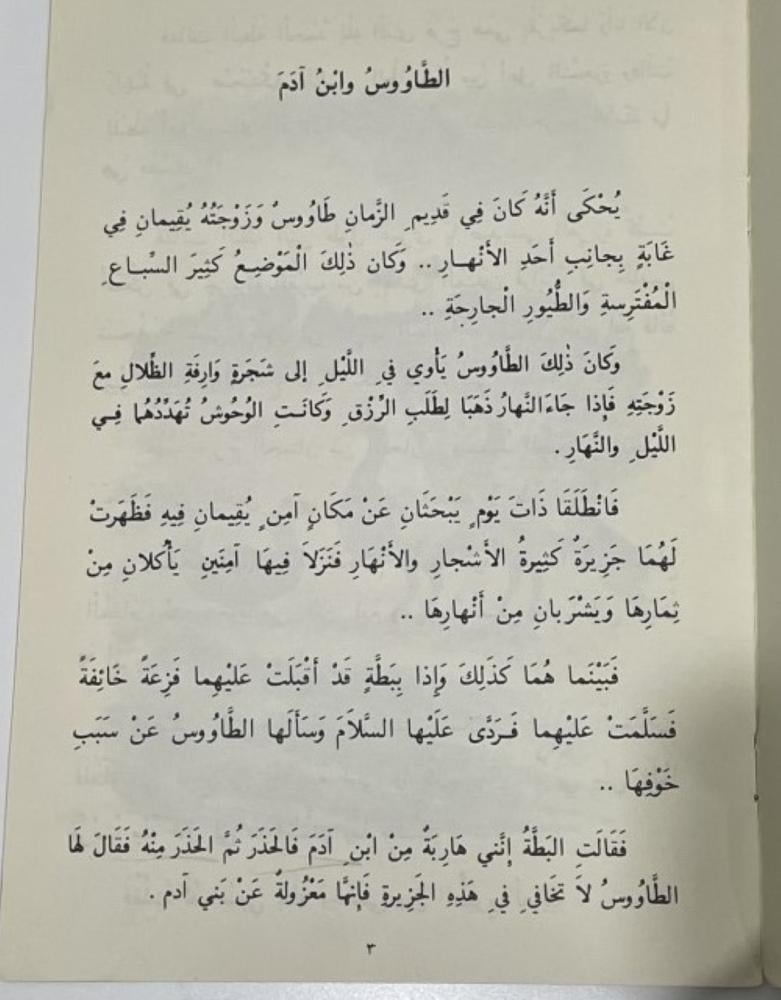 الطَّاوُوسُ وابْنُ آدَمَ
يُحْكَى أَنَّهُ كَانَ فِي قَدِيمِ الزَّمانِ طَاوُوسٌ وَزَوْجَتُهُ يُقِيمانِ فِي
غَابَةٍ بِجانِبِ أَحَدِ الأَنْهـارِ .. وَكَان ذٰلِكَ الْمَوْضِـعُ كَثِيرَ السِّبـاعِ
الْمُفْتَرِسةِ وَالطُّيُورِ الْجارِحَةِ ..
وَكَانَ ذٰلِكَ الطَّاوُوسُ يَأْوي في اللَّيْلِ إلى شَجَرةٍ وَارِفَةِ الظِّلالِ معَ
زَوْجَتِهِ فَإِذا جَاءَ النَّهارُ ذَهَبَا لِطَلَبِ الرِّزْقِ وَكَانَـتِ الوُحُوشُ تُهَدِّدُهُما فِـي
اللَّيْلِ والنَّهَارِ .
فَانْطَلَقَا ذَاتَ يَوْمٍ يَبْحَثَانِ عَنْ مَكَانٍ آمِنٍ يُقِيمانِ فِيهِ فَظَهَرَتْ
لَهُمَا جَزِيرَةٌ كَثِيرةُ الأَشْجارِ والأَنْهَارِ فَنَزَلاَ فِيهَا آمِنَينِ يَأْكلانِ مِنْ
ثِمَارِهَا وَيَشْرَبانِ مِنْ أَنْهارِهَا ..
فَبَيْنَما هُمَا كَذَلِكَ وَإِذا بِبَطَّةٍ قَدْ أَقْبَلَتْ عَلَيْهِما فَزِعَةً خَائِفَةً
فَسَلَّمَتْ عَلَيْهِما فَـرَدَّى عَلَيْها السَّلاَمَ وَسَأَلَها الطَّاوُوسُ عَنْ سَبَبِ
خَوْفِهَا ..
فَقَالَتِ البَطَّةُ إِنَّني هَارِبَةٌ مِنْ ابْنِ آدَمَ فَالحَذَرَ ثُمَّ الحَذَرَ مِنْهُ فَقَالَ لَها
الطَّاوُوسُ لاَ تخَافي في هَذِهِ الجَزِيرةِ فَإِنهَّا مَعْزُولةٌ عَنْ بَني آدم .
٣